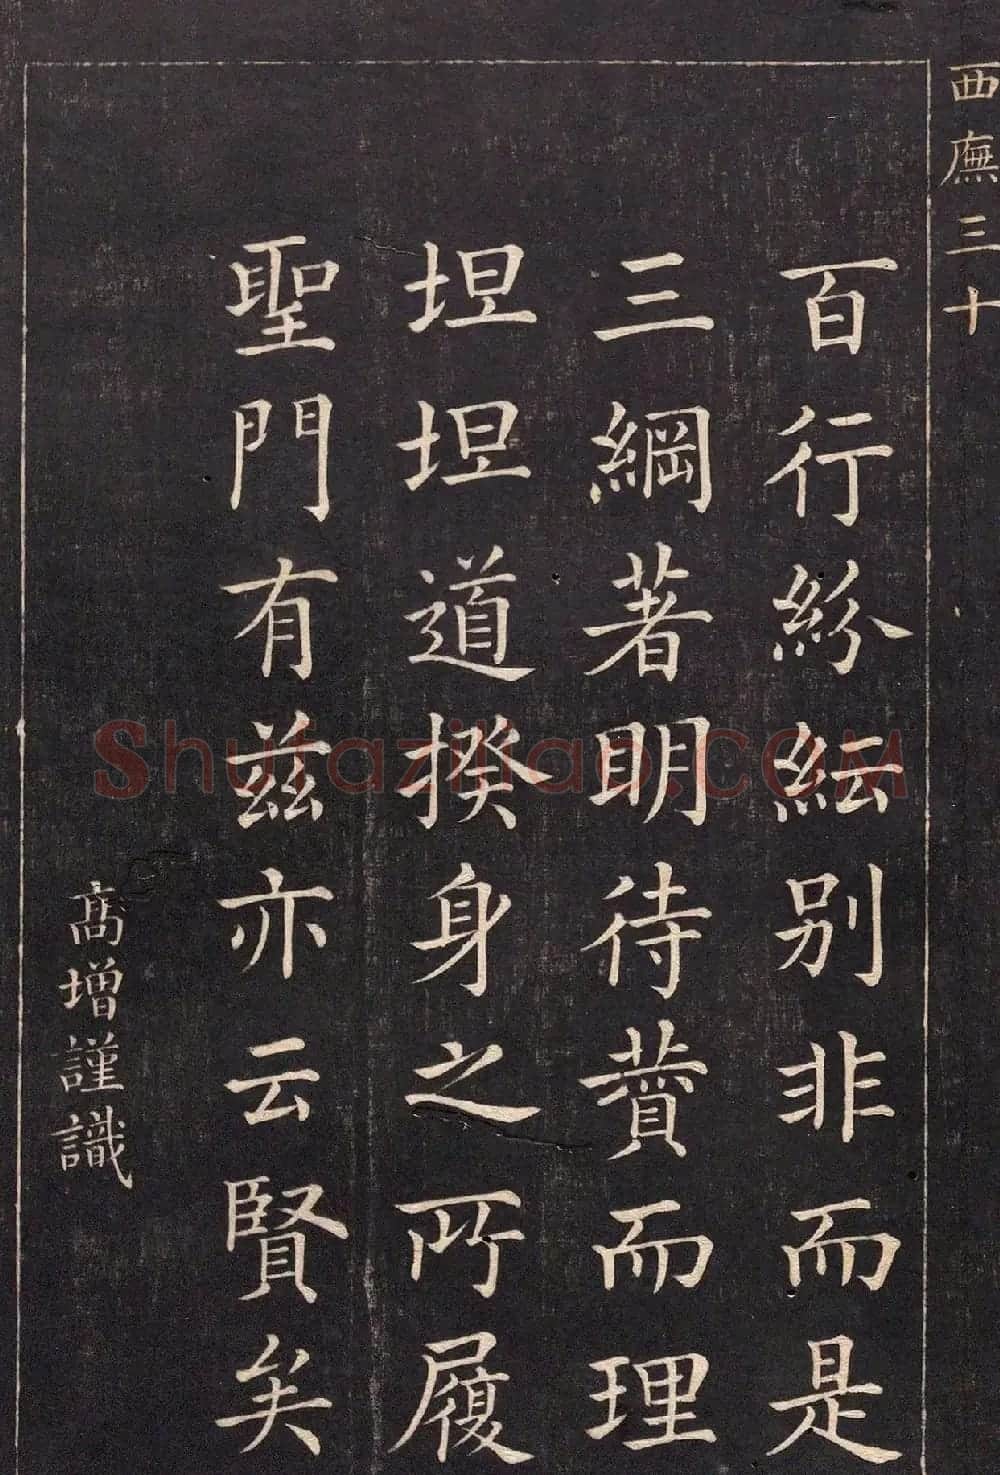 西廡三十
百行紛紜别非而是
三綱著明待賷而理
坦坦道揆身之所履
聖門有兹亦云賢矣
高增謹識
Shufaziliao.com